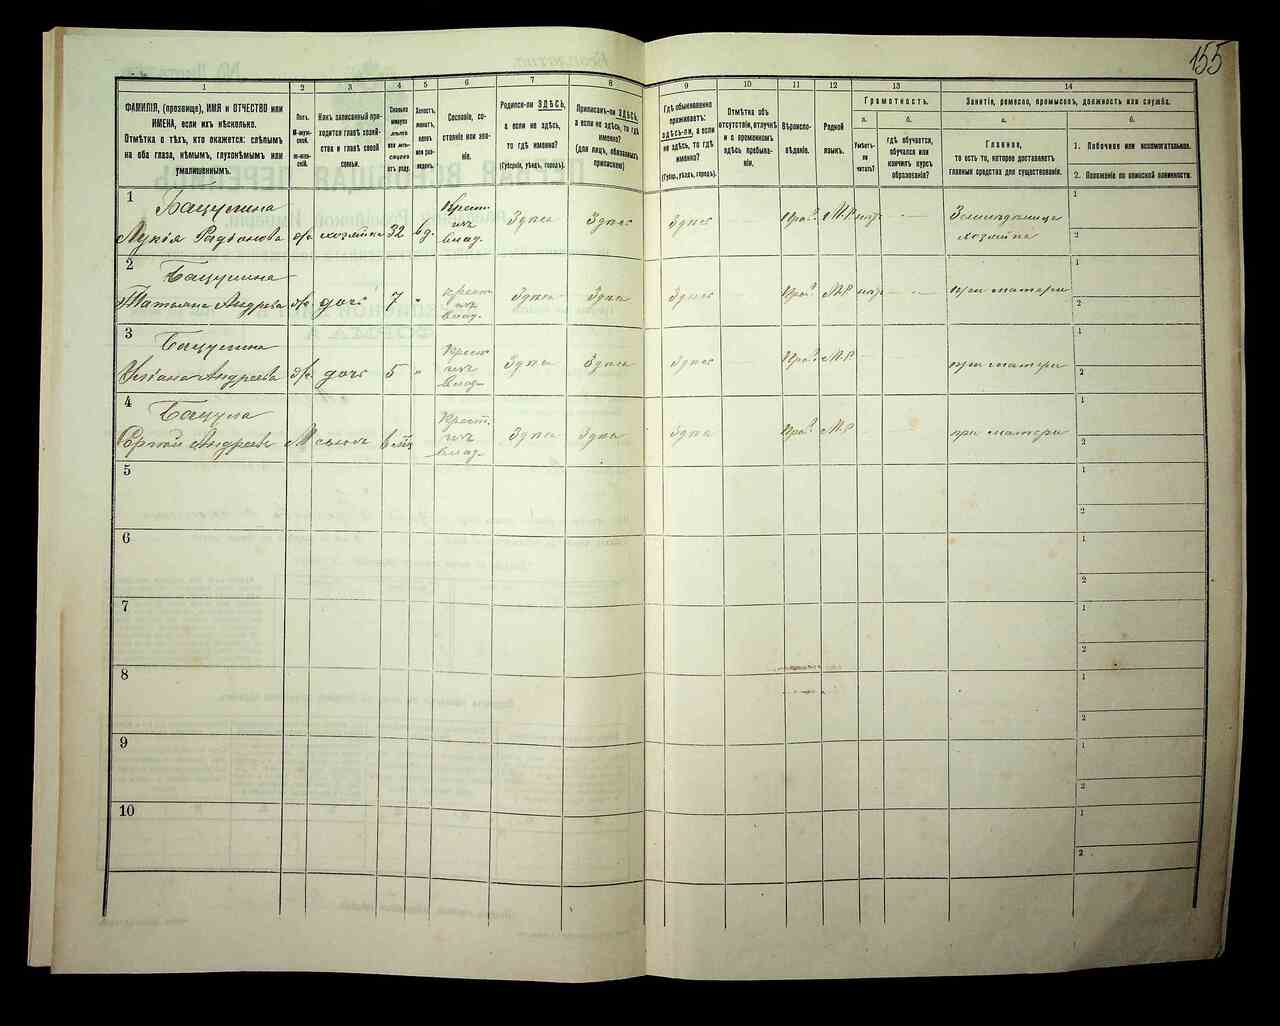 155
1 2 3 4 5 6 7 8 9 10 11 12 13 14
ФАМИЛІЯ, (прозвище), ИМЯ и ОТЧЕСТВО или
ИМЕНА, если ихъ нѣсколько.
Отмѣтка о тѣхъ, кто окажется: слѣпымъ
на оба глаза, нѣмымъ, глухонѣмымъ или
умалишеннымъ.
Полъ.
М-мужской.
ж-женскій.
Какъ записанный приходится
главѣ хозяйства
и главѣ своей
семьи.
Сколько
минуло
лѣтъ
или мѣсяцевъ
отъ роду.
Холостъ,
женатъ,
вдовъ
или разведенъ.
Сословіе, состояніе
или званіе.
Родился-ли ЗДѢСЬ,
а если не здѣсь,
то гдѣ именно?
(Губернія, уѣздъ, городъ).
Приписанъ-ли ЗДѢСЬ,
а если не здѣсь, то гдѣ
именно?
(для лицъ, обязанныхъ
припискою)
Гдѣ обыкновенно
проживаетъ:
здѣсь-ли, а если
не здѣсь, то гдѣ
именно?
(Губер., уѣздъ, городъ).
Отмѣтка объ
отсутствіи, отлучкѣ
и о временномъ
здѣсь пребываніи.
Вѣроисповѣданіе.
Родной
языкъ.
Грамотность.
а. б.
Умѣетъ-ли
читать?
гдѣ обучается,
обучался или
кончилъ курсъ
образованія?
Занятіе, ремесло, промыселъ, должность или служба.
а. б.
Главное,
то есть то, которое доставляетъ
главныя средства для существованія.
1. Побочное или вспомогательное.
2. Положеніе по воинской повинности.
1 Бацулина
Лукія хозяйка 32 вд. Крест. изъ влад. Здѣсь Здѣсь Здѣсь Прав. М.Р. нѣтъ Земледѣлица хозяйка
1
2
2 Бацулина
Татьяна Андреева дочь 7 Крест. изъ влад. Здѣсь Здѣсь Здѣсь Прав. М.Р. нѣтъ при матери
1
2
3 Бацулина
Андреева дочь 5 Крест. изъ влад. Здѣсь Здѣсь Здѣсь Прав. М.Р. при матери
1
2
4 Бацула
Сергѣй Андреевъ М сынъ Крест. изъ влад. Здѣсь Здѣсь Здѣсь Прав. М.Р. при матери
1
2
5
1
2
6
1
2
7
1
2
8
1
2
9
1
2
10
1
2